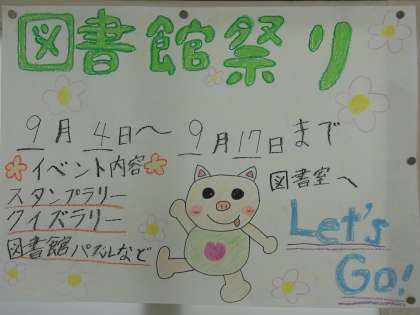 図書館祭り
9月4日～9月17日まで
イベント内容
スタンプラリー
クイズラリー
図書館パズルなど
図書室へ
Let's
Go!